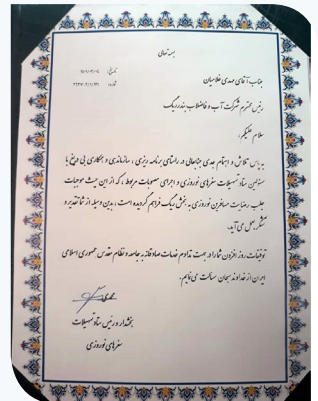 بسمه تعالی
تاریخ:
شماره:
جناب آقای مهدی غلامیان
رئیس محترم شرکت آب و فاضلاب بندرریگ
سلام علیکم؛
به پاس تلاش و اهتمام جدی جنابعالی در راستای برنامه ریزی، سازماندهی و همکاری بی دریغ با
مسئولین ستاد تسهیلات سفرهای نوروزی و اجرای مصوبات مربوط، که از این حیث موجبات
جلب رضایت مسافرین نوروزی به بخش ریگ فراهم گردیده است، بدین وسیله از شما تقدیر و
تشکر بعمل می آید.
توفیقات روز افزون شما را در جهت تداوم خدمات صادقانه به جامعه و نظام مقدس جمهوری اسلامی
ایران از خداوند سبحان مسالت می نمایم.
بخشدار و رئیس ستاد تسهیلات
سفرهای نوروزی